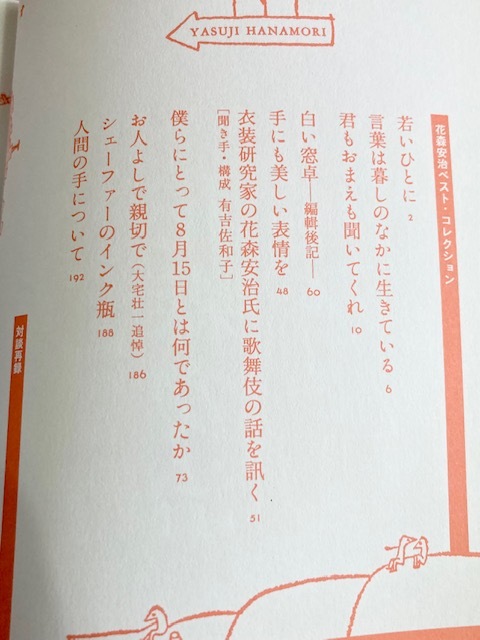 YASUJI HANAMORI
花森安治ベスト・コレクション
若いひとに 2
言葉は暮しのなかに生きている 6
君もおまえも聞いてくれ 10
白い窓卓——編輯後記—— 60
手にも美しい表情を 48
衣裳研究家の花森安治氏に歌舞伎の話を訊く 51
［聞き手・構成 有吉佐和子］
僕らにとって8月15日とは何であったか 73
お人よしで親切で（大宅壮一追悼） 186
シェーファーのインク瓶 188
人間の手について 192
対談再録